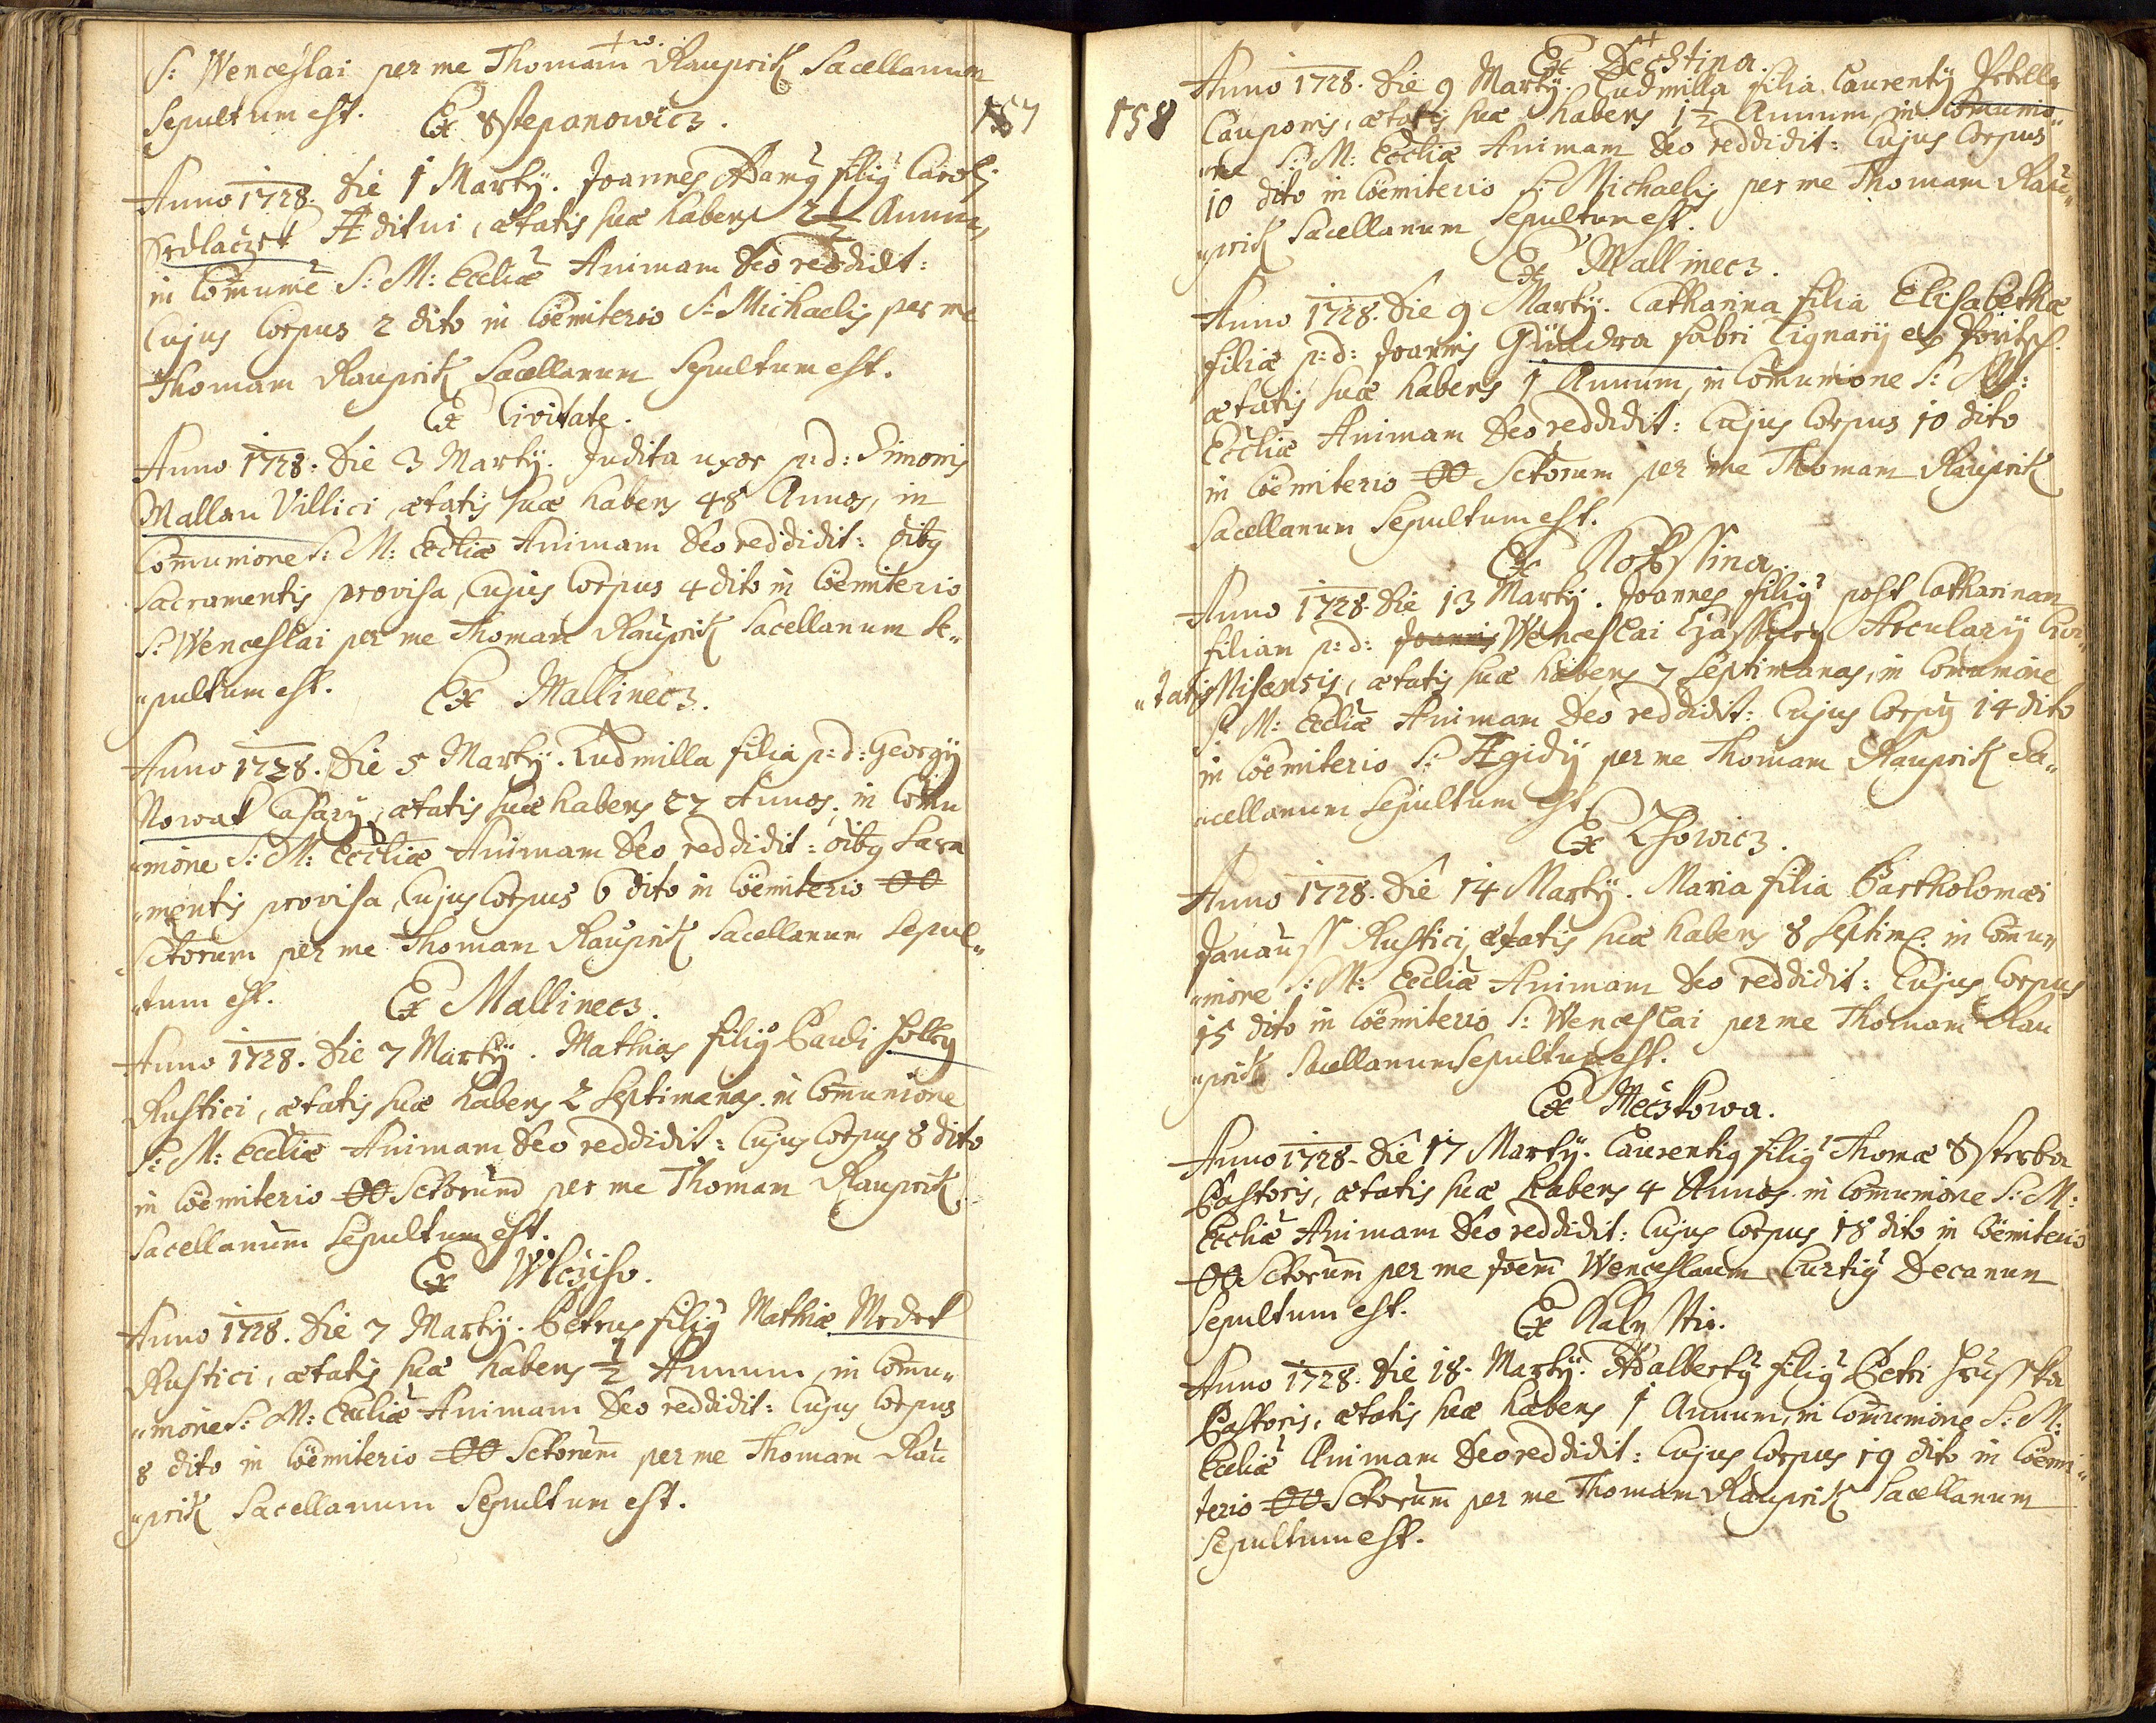 S: Wenceslai per me Thomam Rauprik Sacellanum
Sepultum est. Ex Sstepanowicz.
157
Anno 1728. Die 1 Martÿ. Joannes Adamg filig Caroli
Sedlaczek Æditui, ætatis suæ habens 2 1/2 Annum,
in Comunie S: M: Eccliæ Animam Deo reddidit:
Cujus Corpus 2 dito in Cöemiterio S: Michaelis per me
Thomam Rauprik Sacellanum Sepultum est.
Ex Civitate.
Anno 1728. Die 3 Martÿ. Judita uxor p:d: Simonis
Mallau Villici, ætatis suæ habens 48 Annos, in
Comunione S: M: Eccliæ Animam Deo reddidit: oibg
Sacramentis provisa, Cujus Corpus 4 dito in Cöemiterio
S: Wenceslai per me Thomam Rauprik Sacellanum Se„
„pultum est. Ex Mallinecz.
Anno 1728. Die 5 Martÿ. Ludmilla filia p:d: Georgÿ
Nowak Casarÿ, ætatis suæ habens 27 Annos, in Comu
„nione S: M: Eccliæ Animam Deo reddidit: oibg Sacra
„mentis provisa, Cujus Corpus 6 dito in Cöemiterio OO
Sctorum per me Thomam Rauprik Sacellanum Sepul„
„tum est. Ex Mallinecz.
Anno 1728. Die 7 Martÿ. Mathias filig Pauli Holky
Rustici, ætatis suæ habens 2 Septimanas in Comunione
S: M: Eccliæ Animam Deo reddidit: Cujus Corpus 8 dito
in Cöemiterio OO Sctorum per me Thomam Rauprik
Sacellanum Sepultum est.
Ex Wlcziho.
Anno 1728. Die 7 Martÿ. Petrus filig Mathiæ Medek
Rustici, ætatis suæ habens 1/2 Annum, in Comu„
„nione S: M: Eccliæ Animam Deo reddidit: Cujus Corpus
8 dito in Cöemiterio OO Sctorum per me Thomam Rau
„prik Sacellanum Sepultum est.
158
Ex Dechtina.
Anno 1728. Die 9 Martÿ. Ludmilla filia Laurentÿ
Cauponis, ætatis suæ habens 1 1/2 Annum, in Comunio„
„ne S: M: Eccliæ Animam Deo reddidit: Cujus Corpus
10 dito in Cöemiterio S: Michaelis per me Thomam Rau„
„prik Sacellanum Sepultum est.
Ex Mallinecz.
Anno 1728. Die 9 Martÿ. Catharina filia Elisabethæ
filiæ p:d: Joannis Gündra fabri Lignarÿ
ætatis suæ habens 1 Annum, in Comunione S: M:
Eccliæ Animam Deo reddidit: Cujus Corpus 10 dito
in Cöemiterio OO Sctorum per me Thomam Rauprik
Sacellanum Sepultum est.
Ex Kokssina.
Anno 1728. Die 13 Martÿ. Joannes filig post Catharinam
filiam p:d: Joannis Wenceslai Arcularÿ Civi„
„tatis Misensis, ætatis suæ habens 7 Septimanas, in Comunione
S: M: Eccliæ Animam Deo reddidit: Cujus Corpg 14 dito
in Cöemiterio S: Ægidÿ per me Thomam Rauprik Sa„
„cellanum Sepultum est.
Ex Lhowicz.
Anno 1728. Die 14 Martÿ. Maria filia Bartholomæi
Janauss Rustici, ætatis suæ habens 8 Septim. in Comu„
„nione S: M: Eccliæ Animam Deo reddidit: Cujus Corpus
15 dito in Cöemiterio S: Wenceslai per me Thomam Rau
„prik Sacellanum Sepultum est.
Ex Meczkowa.
Anno 1728. Die 17 Martÿ. Laurentig filig Thomæ Ssterba
Pastoris, ætatis suæ habens 4 Annos in Comunione S: M:
Eccliæ Animam Deo reddidit: Cujus Corpus 18 dito in Cöemiterio
OO Sctorum per me Joem Wenceslaum Curtig Decanum
Sepultum est. Ex Kalisstie.
Anno 1728. Die 18. Martÿ. Adalbertg filig Petri Hrusska
Pastoris, ætatis suæ habens 1 Annum, in Comunione S: M:
Eccliæ Animam Deo reddidit: Cujus Corpus 19 dito in Cöemi„
terio OO Sctorum per me Thomam Rauprik Sacellanum
Sepultum est.